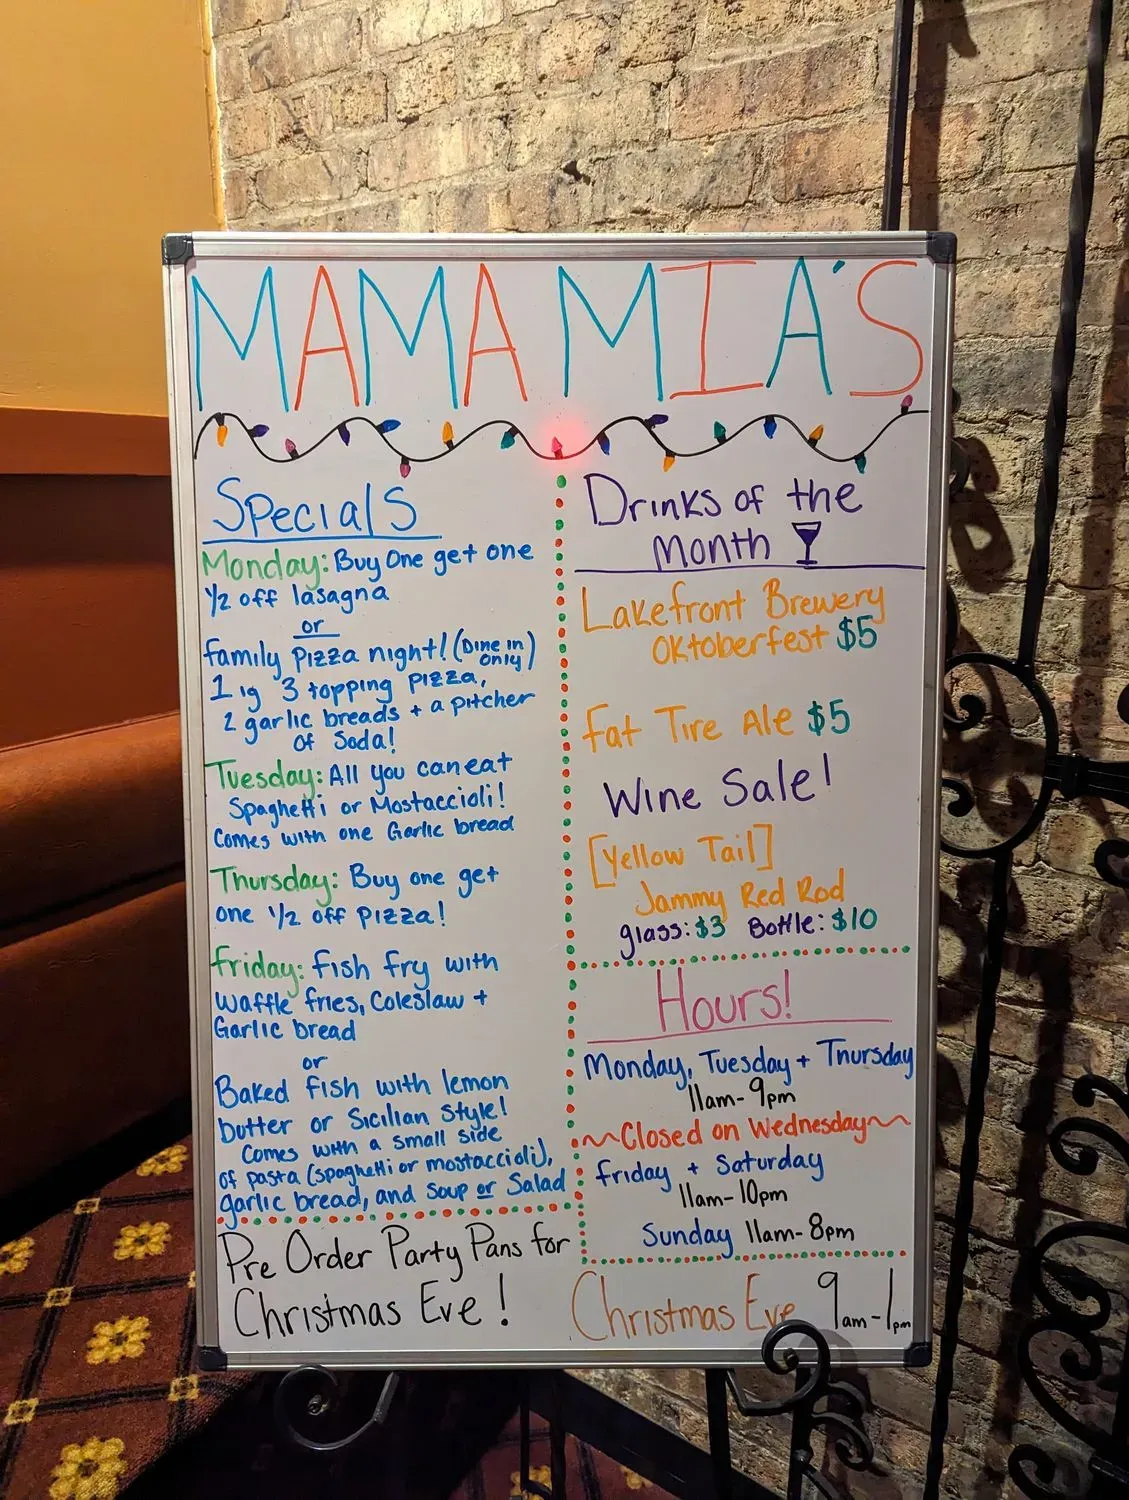 MAMA MIA'S
Specials
Monday: Buy One get one
1/2 off lasagna
or
family pizza night! (Dine in
only)
1 lg 3 topping pizza,
2 garlic breads + a pitcher
of Soda!
Tuesday: All you can eat
Spaghetti or Mostaccioli!
Comes with one Garlic bread
Thursday: Buy one get
one 1/2 off pizza!
friday: fish fry with
waffle fries, Coleslaw +
Garlic bread
or
Baked fish with lemon
butter or Sicilian Style!
Comes with a small side
of pasta (spaghetti or mostaccioli),
garlic bread, and soup or Salad
Pre Order Party Pans for
Christmas Eve!
Drinks of the
month
Lakefront Brewery
Oktoberfest $5
Fat Tire Ale $5
Wine Sale!
[Yellow Tail]
Jammy Red Rod
glass: $3 Bottle: $10
Hours!
Monday, Tuesday + Thursday
11am-9pm
~Closed on Wednesday~
friday + Saturday
11am-10pm
Sunday 11am-8pm
Christmas Eve 9am-1pm